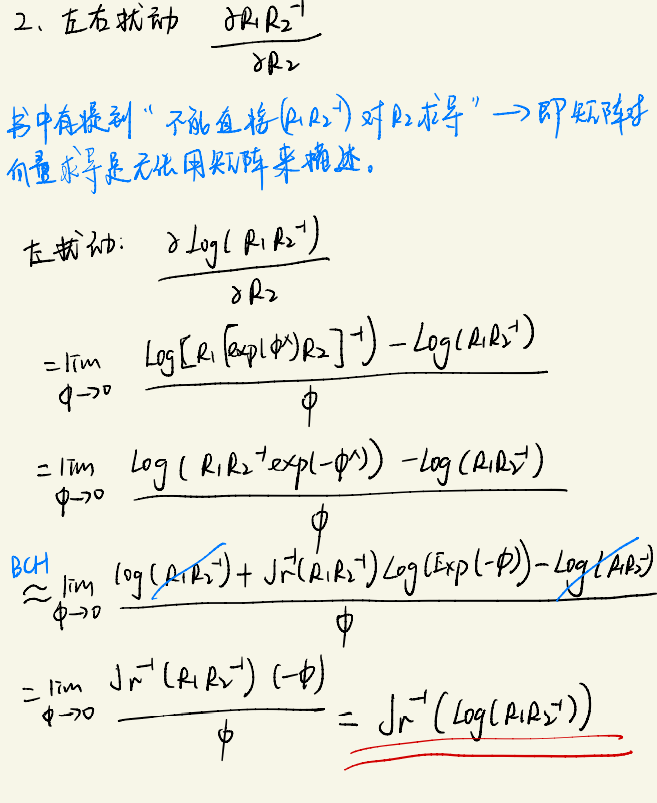 2、左右扰动 ∂R₁R₂⁻¹ / ∂R₂
书中有提到“不能直接(R₁R₂⁻¹)对R₂求导” → 即矩阵对
向量求导是无法用矩阵来描述。
左扰动: ∂Log(R₁R₂⁻¹) / ∂R₂
= lim φ→0 Log[R₁[exp(φ^)R₂]⁻¹) - Log(R₁R₂⁻¹) / φ
= lim φ→0 Log(R₁R₂⁻¹exp(-φ^)) - Log(R₁R₂⁻¹) / φ
BCH ≈ lim φ→0 log(R₁R₂⁻¹) + Jr⁻¹(R₁R₂⁻¹)Log(Exp(-φ)) - Log(R₁R₂⁻¹) / φ
= lim φ→0 Jr⁻¹(R₁R₂⁻¹)(-φ) / φ = Jr⁻¹(Log(R₁R₂⁻¹))